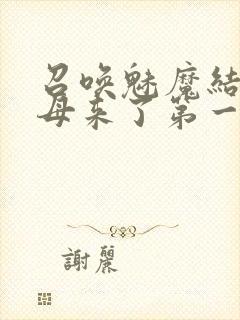 召唤魅魔結
母来了第一
謝麗